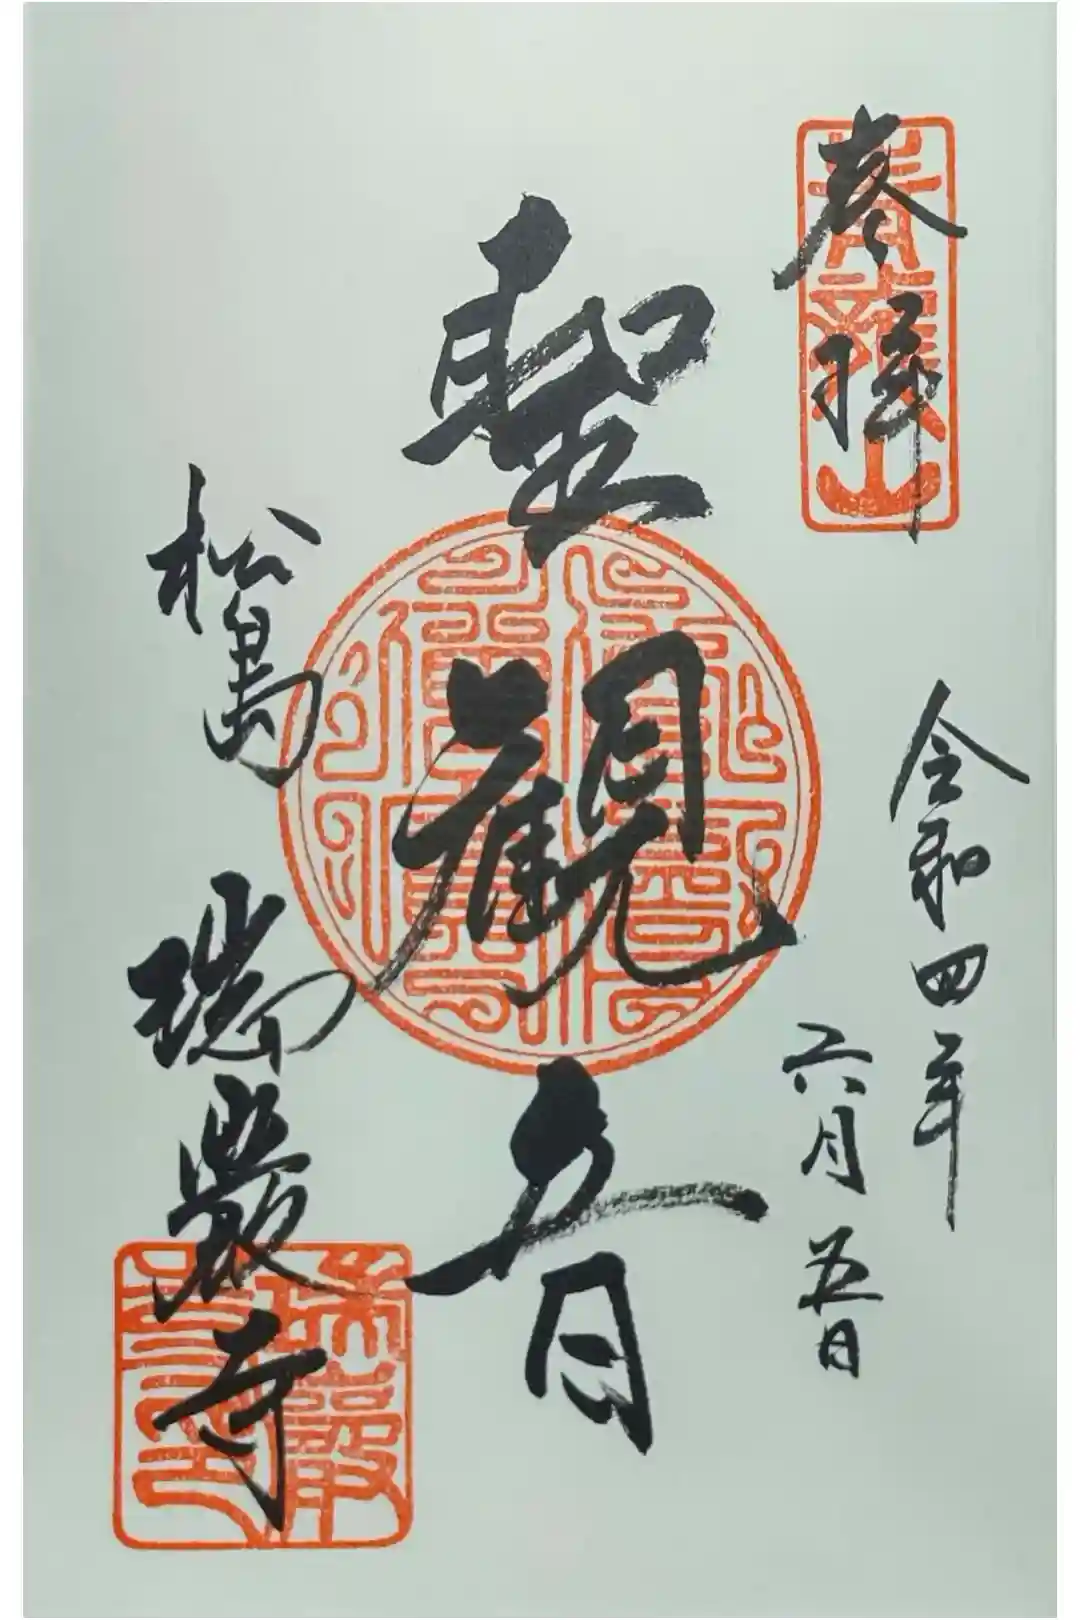 奉拝
青龍山
令和四年
六月五日
聖観音
松島 瑞巌寺